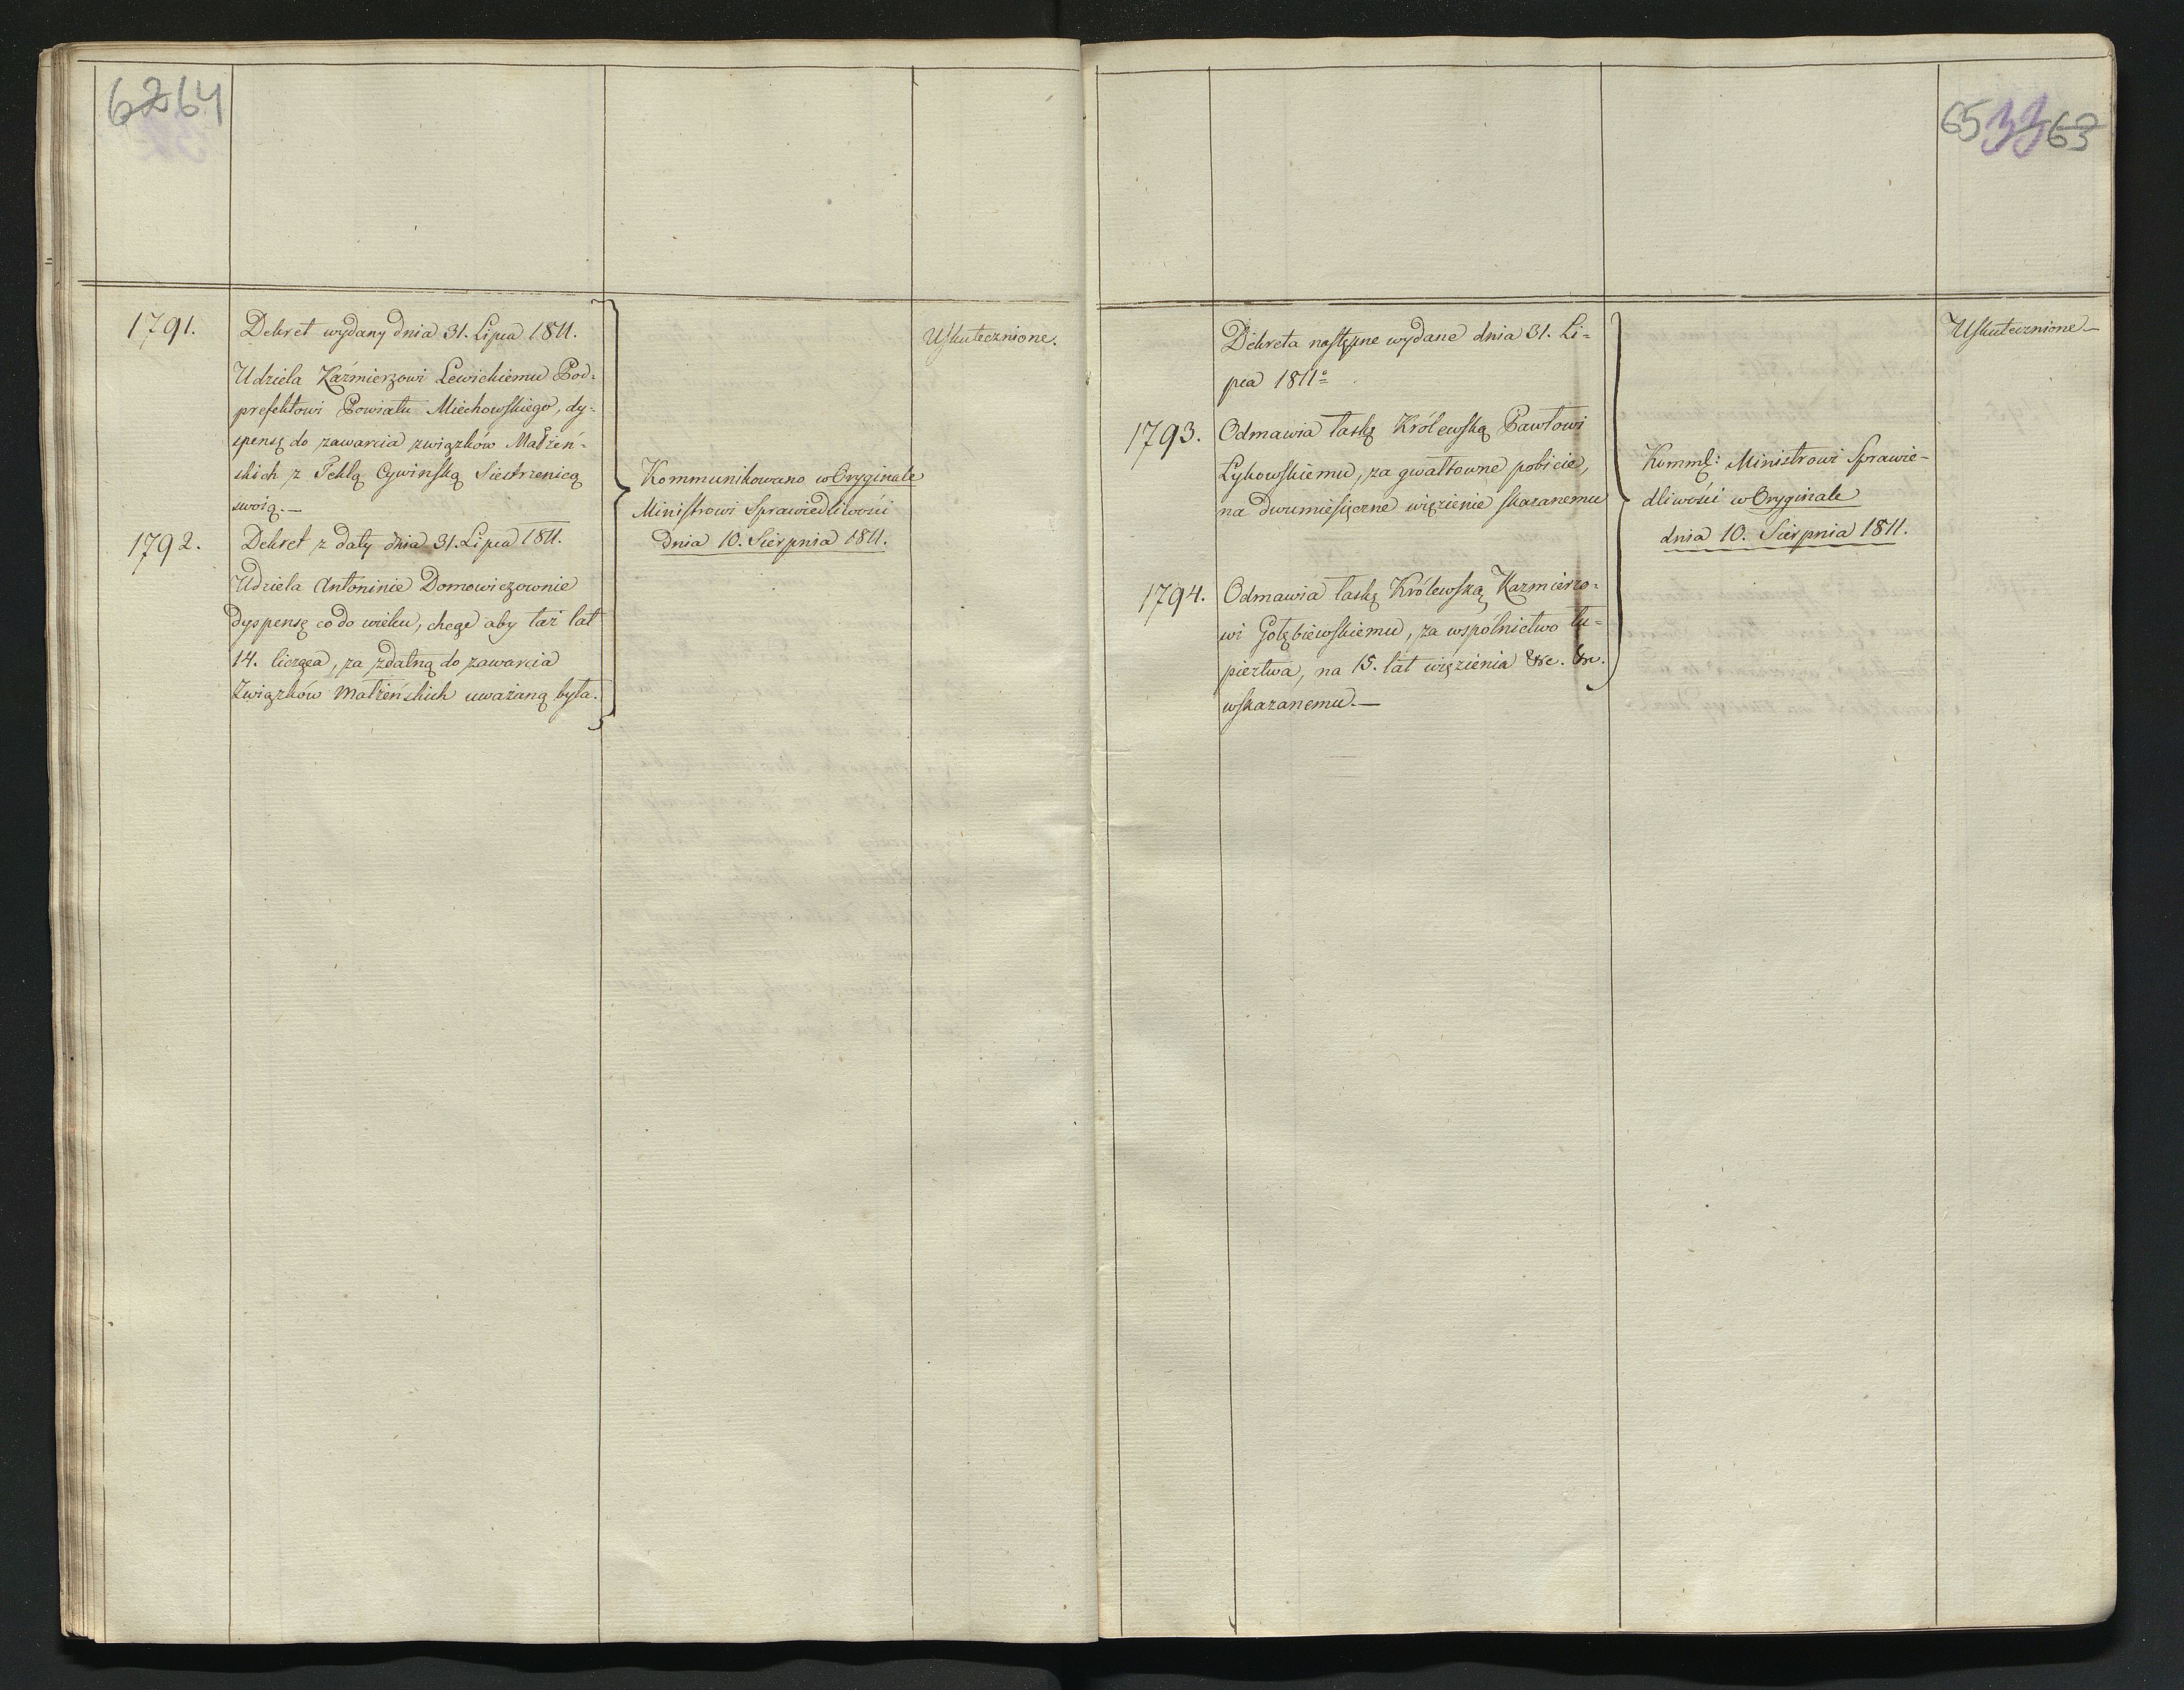 6264
1791.
Dekret wydany dnia 31. Lipca 1811.
Udziela Kaźmierzowi Lewickiemu Pod-
prefektowi Powiatu Miechowskiego, dy-
spensę do zawarcia związków Małżeń-
skich z Teklą Cywińską Siestrzenicą
swoią.—
1792.
Dekret z daty dnia 31. Lipca 1811.
Udziela Antoninie Domowiczownie
dyspensę co do wieku, chcąc aby taż lat
14. licząca, za zdatną do zawarcia
Związków Małżeńskich uważaną była.
Kommunikowano w Oryginale
Ministrowi Sprawiedliwości
Dnia 10. Sierpnia 1811.
Uskutecznione.
65 33 63
Dekreta następne wydane dnia 31. Li-
pca 1811º
1793.
Odmawia łaskę Królewską Pawłowi
Łykowskiemu, za gwałtowne pobicie,
na dwumiesięczne więzienie skazanemu
1794.
Odmawia łaskę Królewską Kazmierzo-
wi Gołębiewskiemu, za wspólnictwo łu-
pieztwa, na 15. lat więzienia &c. &c.
wskazanemu.—
Kommk: Ministrowi Sprawie-
dliwości w Oryginale
dnia 10. Sierpnia 1811.
Uskutecznione—